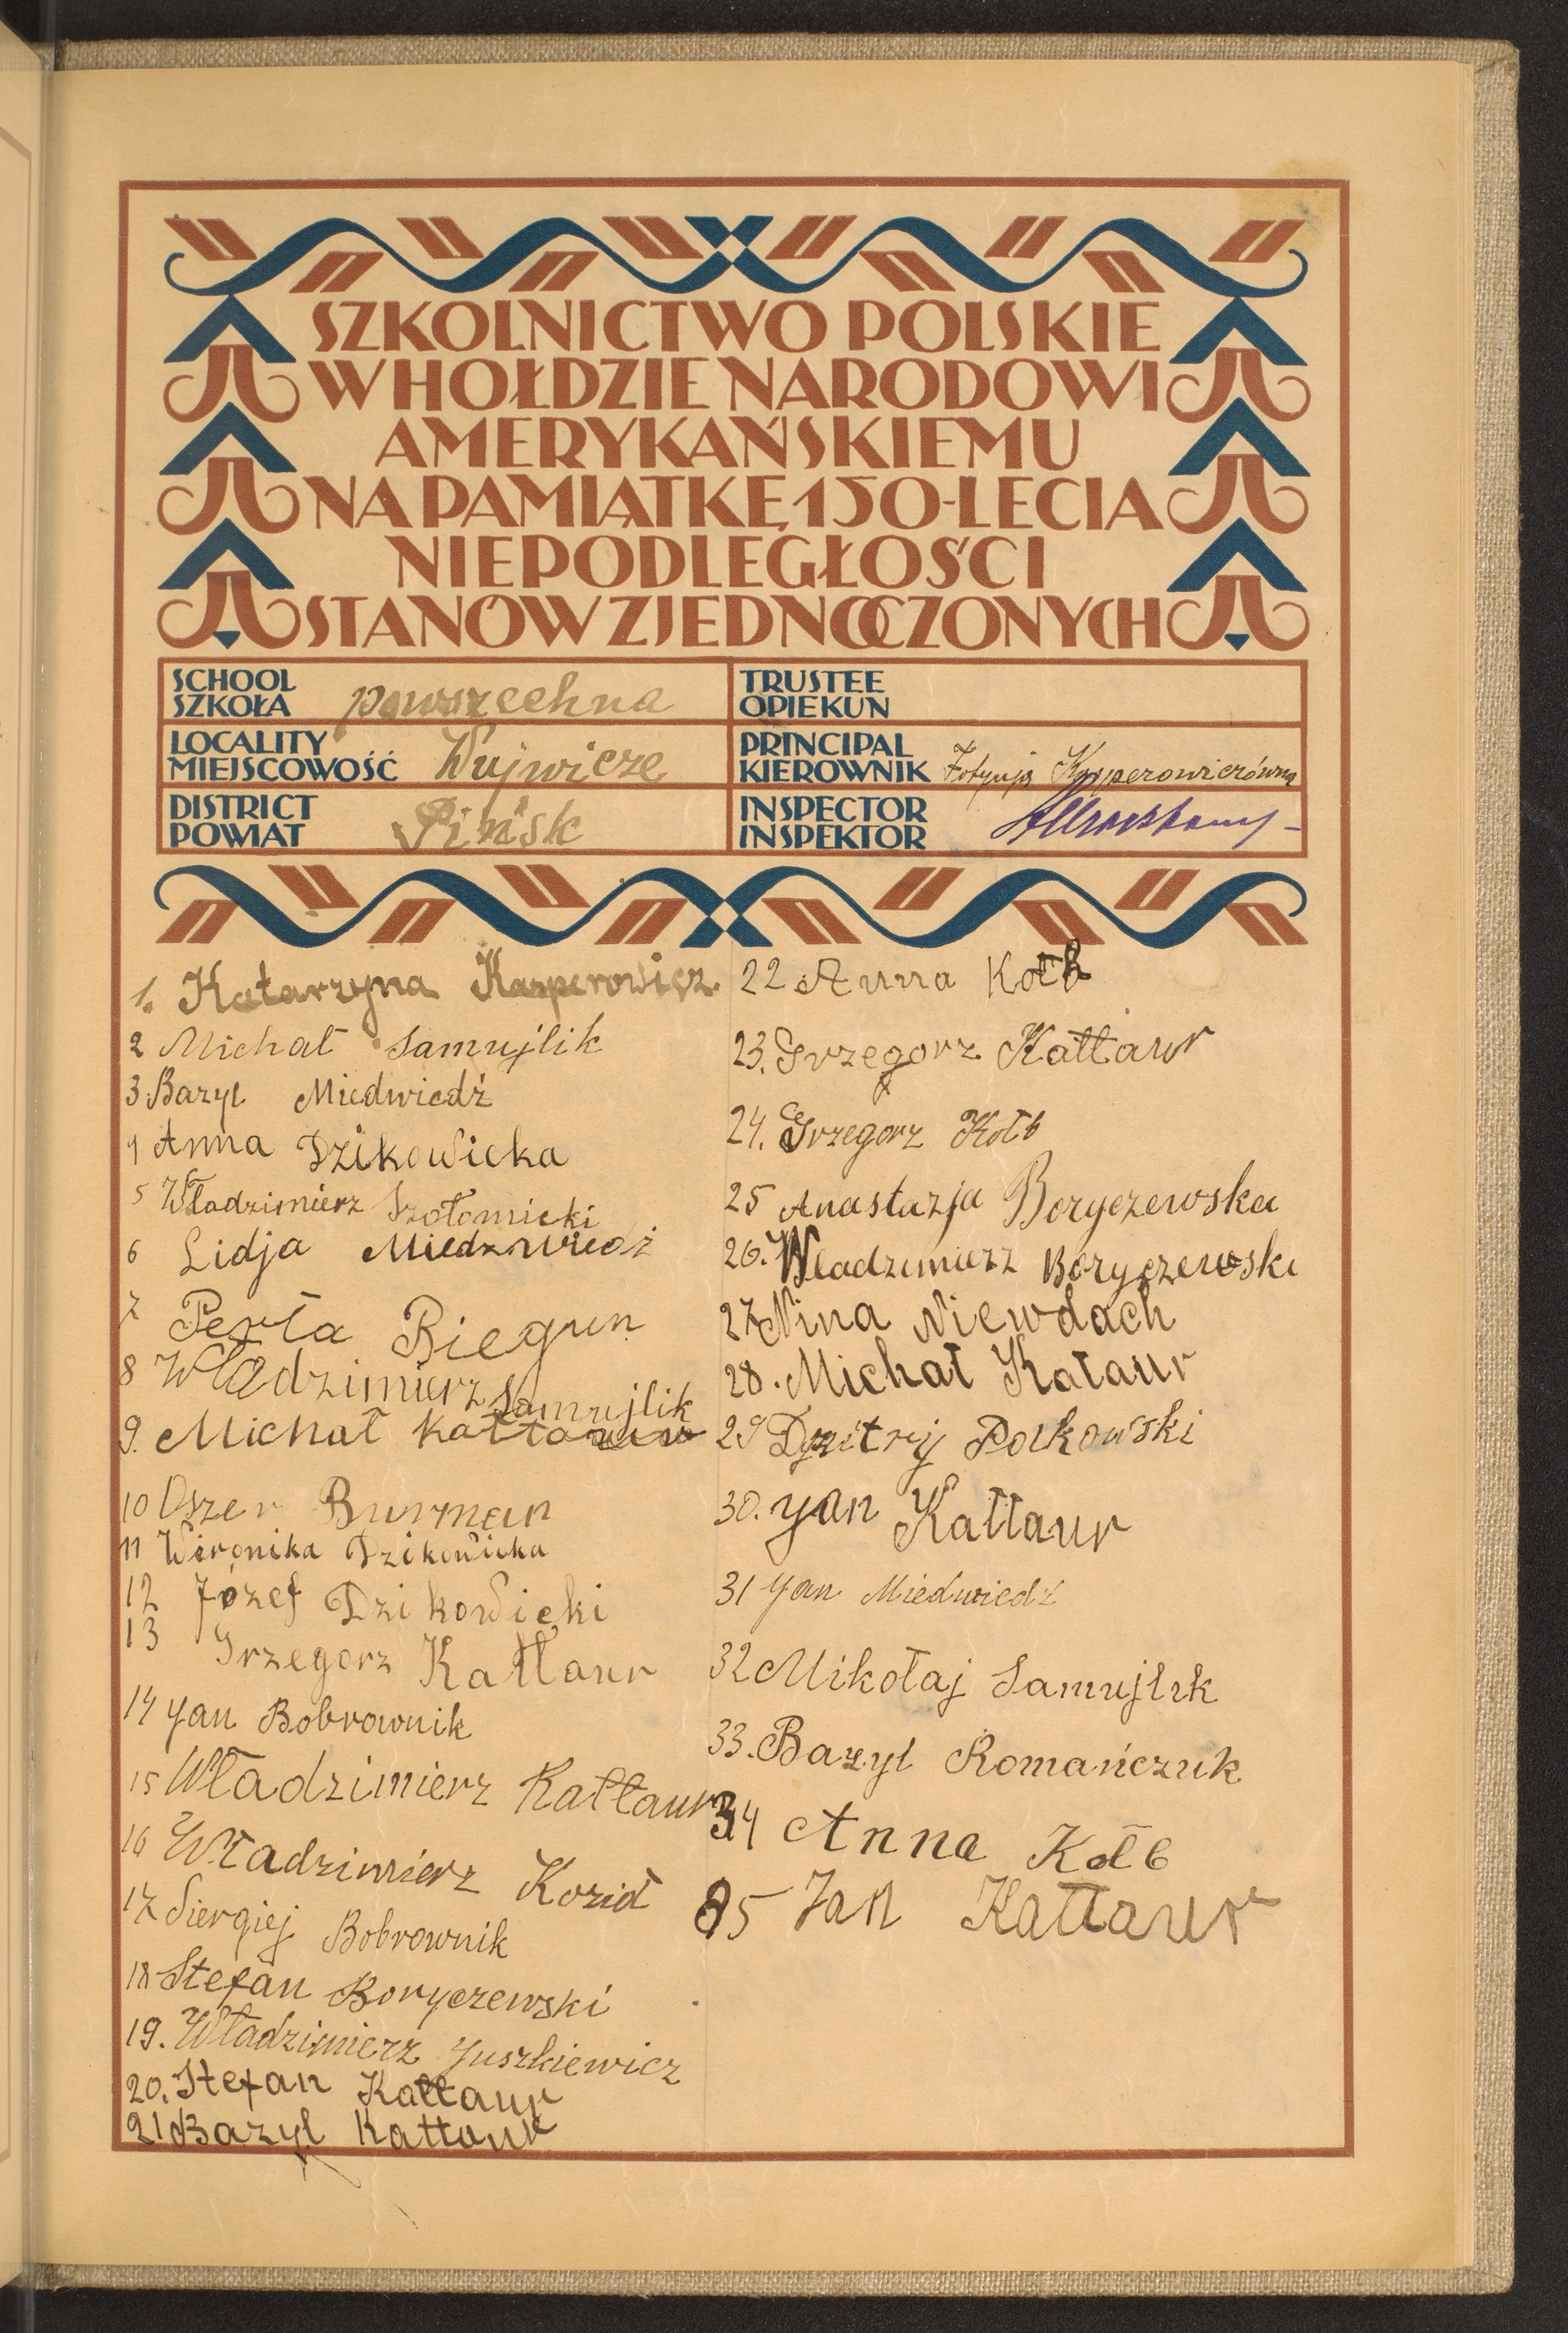 SZKOLNICTWO POLSKIE
W HOŁDZIE NARODOWI
AMERYKAŃSKIEMU
NA PAMIĄTKĘ 150-LECIA
NIEPODLEGŁOŚCI
STANÓW ZJEDNOCZONYCH
SCHOOL
SZKOŁA powszechna
TRUSTEE
OPIEKUN
LOCALITY
MIEJSCOWOŚĆ Wujwicze
PRINCIPAL
KIEROWNIK Fotynja Kasperowiczówna
DISTRICT
POWIAT Pińsk
INSPECTOR
INSPEKTOR
1. Katarzyna Kasperowicz
2 Michał Samujlik
3 Bazyl Miedwiedź
4 Anna Dzikowicka
5 Władzimierz Szołomicki
6 Lidja Miedzwiedź
7 Perła Biegun
8 Władzimierz Samujlik
9. Michał Kałłaur
10 Oszer Burman
11 Weronika Dzikowicka
12 Józef Dzikowicki
13 Grzegorz Kałłaur
14 Jan Bobrownik
15 Władzimierz Kałłaur
16 Władzimierz Kozioł
17 Siergiej Bobrownik
18 Stefan Boryczewski
19. Władzimierz Juszkiewicz
20. Stefan Kałłaur
21 Bazyl Kałłaur
22 Anna Kołb
23. Grzegorz Kałłaur
24. Grzegorz Kołb
25 Anastazja Boryczewska
26. Władzimierz Boryczewski
27 Nina Niewdach
28. Michał Kałaur
29 Dymitryj Polkowski
30. Jan Kałłaur
31 Jan Miedwiedź
32 Mikołaj Samujlik
33. Bazyl Romańczuk
34 Anna Kołb
35 Jan Kałłaur